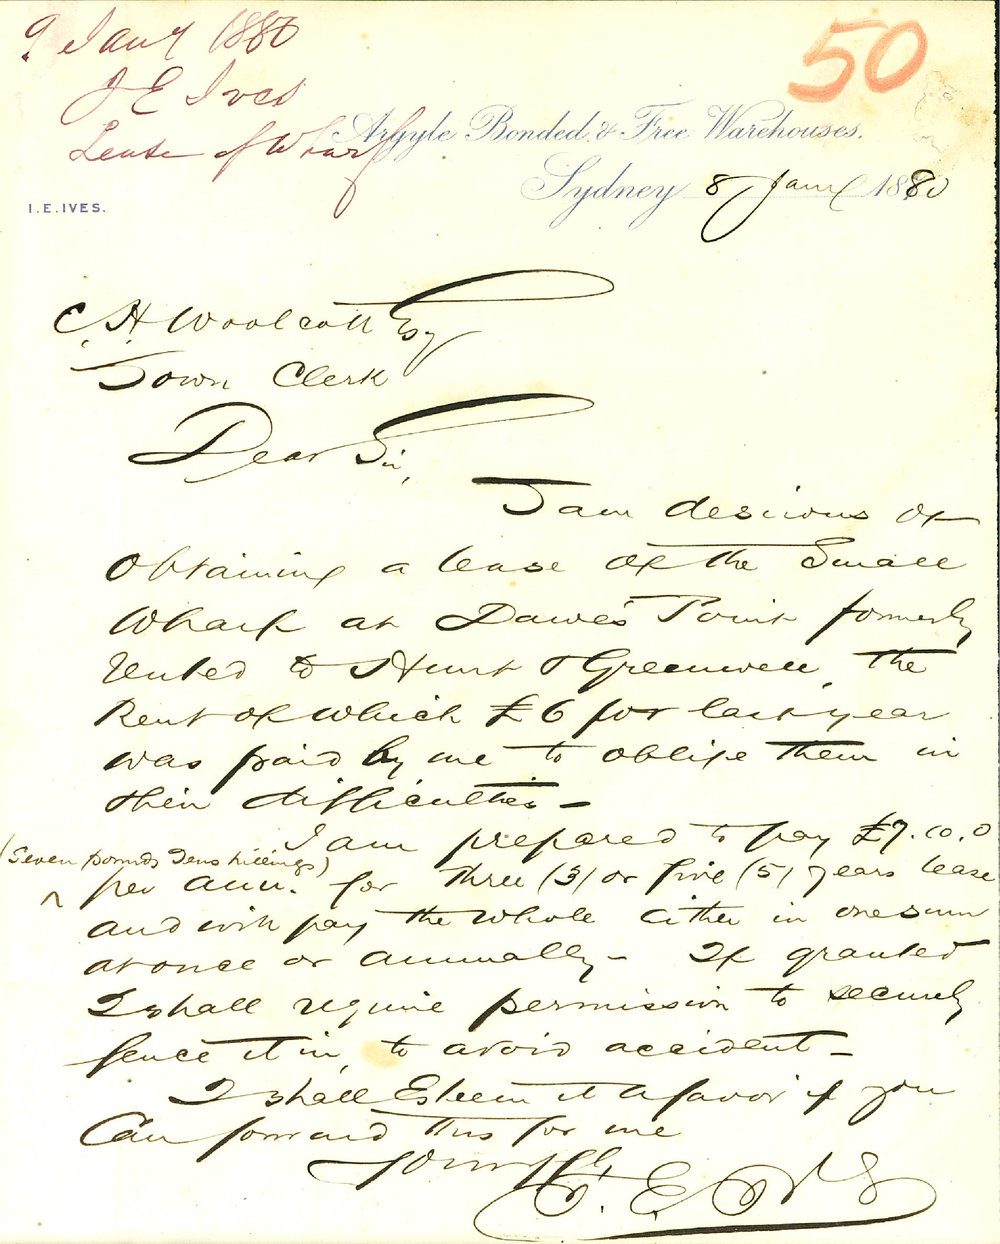 9 Jany 1880
50
J E Ives
Lease of Wharf
Argyle Bonded & Free Warehouses.
Sydney 8 Jany 1880
I.E.IVES.
C. H Woolcott Esq
Town Clerk
Dear Sir,
I am desirous of
obtaining a lease of the Small
Wharf at Dawe's Point formerly
rented to Hunt & Greenwell, the
Rent of which £6 for last year
was paid by me to oblige them in
their difficulties -
I am prepared to pay £7.10.0
(Seven pounds Ten shillings)
^ per ann. for three (3) or five (5) years lease
and will pay the whole either in one sum
at once or annually - If granted
I shall require permission to securely
fence it in, to avoid accident -
I shall Esteem it a favor if you
Can forward this for me
Yours
I. E. Ives